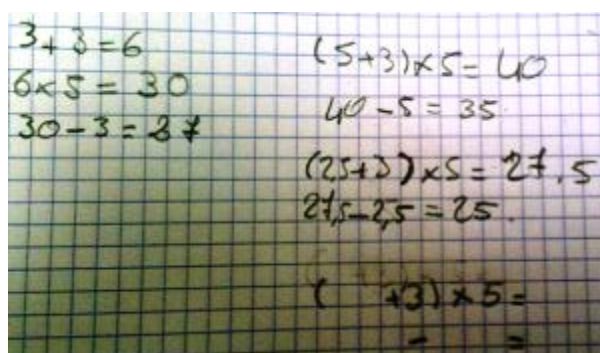 3+3=6
6×5=30
30-3=27
(5+3)×5=40
40-5=35.
(2,5+3)×5=27,5
27,5-2,5=25.
( +3)×5=
- =